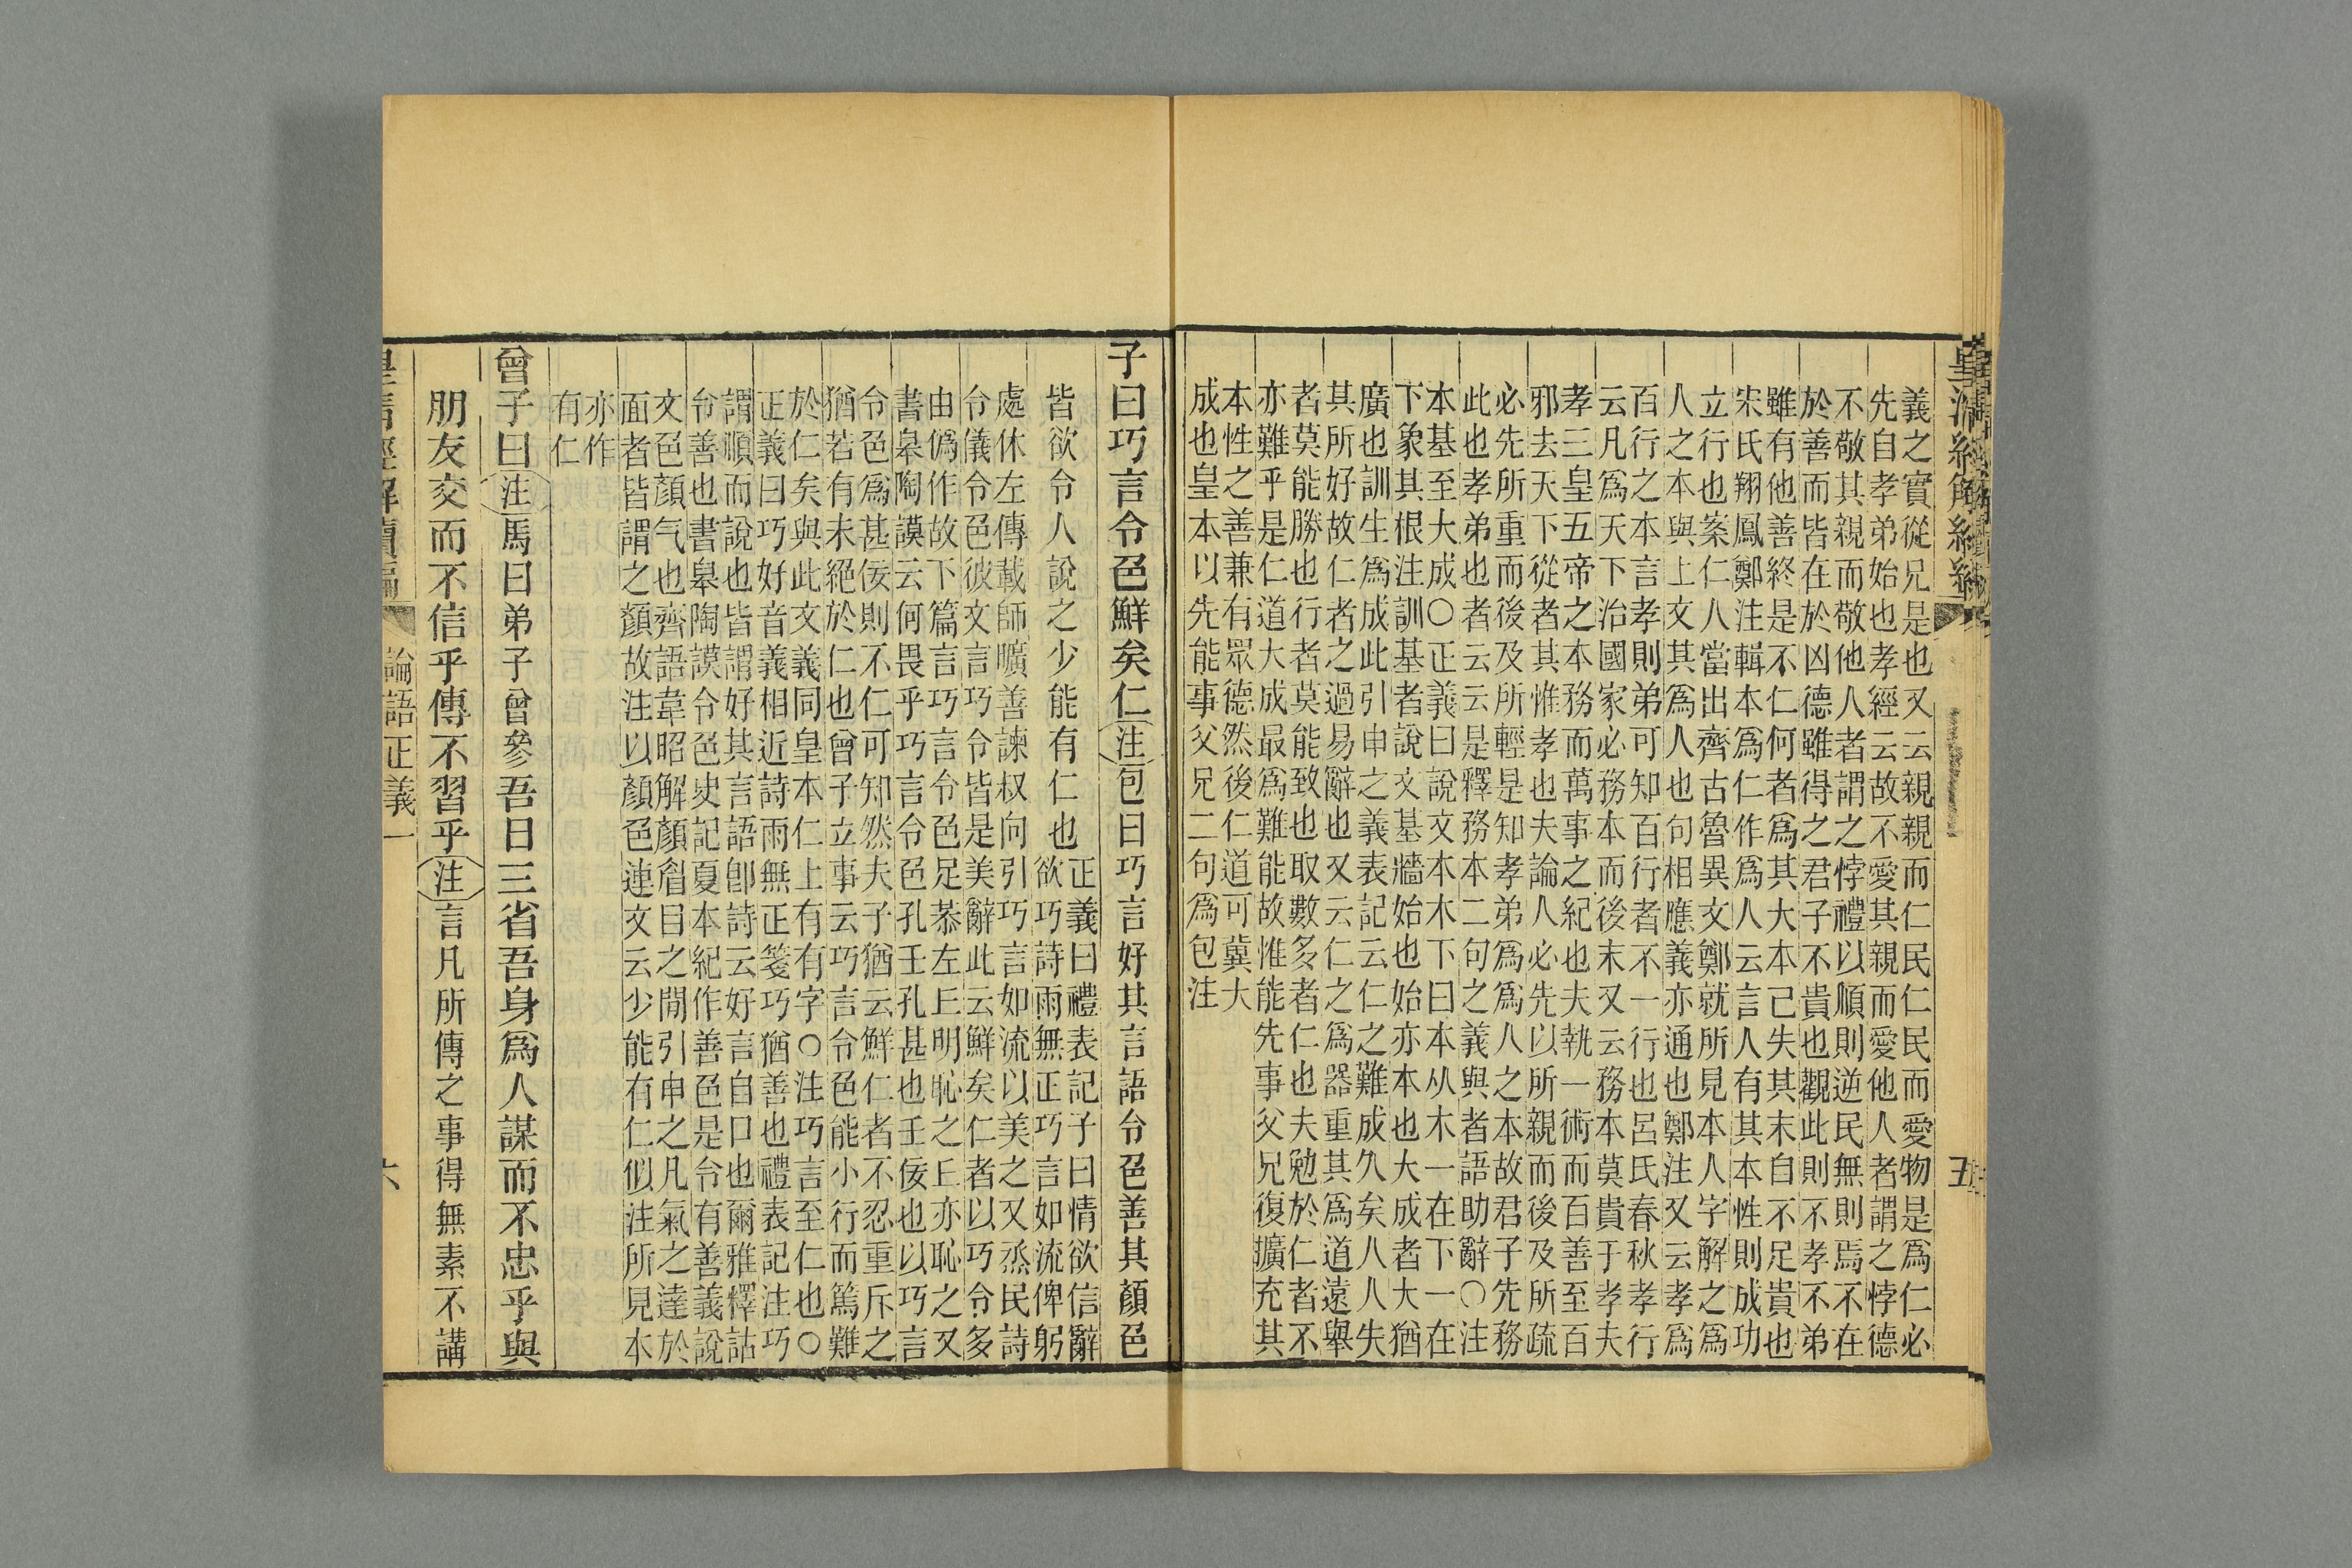 義之實從兄是也又云親親而仁民仁民而愛物是為仁必
先自孝弟始也孝經云故不愛其親而愛他人者謂之悖德
不敬其親而敬他人者謂之悖禮以順則逆民無則焉不在
於善而皆在於凶德雖得之君子不貴也觀此則不孝不弟
雖有他善終是不仁何者為其大本己失其末自不足貴也
宋氏翔鳳鄭注輯本為仁作為人云言人有其本性則成功
立行也案仁八當出齊古魯異文鄭就所見本人字解之為
人之本與上文其為人也句相應義亦通也鄭注又云孝為
百行之本言孝則弟可知百行者不一行也呂氏春秋孝行
云凡為天下治國家必務本而後末又云務本莫貴于孝夫
孝三皇五帝之本務而萬事之紀也夫執一術而百善至百
邪去天下從者其惟孝也夫論人必先以所親而後及所疏
必先所重而後及所輕是知孝弟為為人之本故君子先務
此也孝弟也者云云是釋務本二句之義與者語助辭○注
本基至大成○正義曰說文本木下曰本从木一在下一在
下象其根注訓基者說文基牆始也始亦本也大成者大猶
廣也訓生為成此引申之義表記云仁之難成久矣人人失
其所好故仁者之過易辭也又云仁之為器重其為道遠舉
者莫能勝也行者莫能致也取數多者仁也夫勉於仁者不
亦難乎是仁道大成最為難能故惟能先事父兄復擴充其
本性之善兼有眾德然後仁道可冀大
成也皇本以先能事父兄二句為包注
子曰巧言令色鮮矣仁注包曰巧言好其言語令色善其顏色
皆欲令人說之少能有仁也正義曰禮表記子曰情欲信辭
欲巧詩雨無正巧言如流俾躬
處休左傳載師曠善諫叔向引巧言如流以美之又烝民詩
令儀令色彼文言巧令皆是美辭此云鮮矣仁者以巧令多
由僞作故下篇言巧言令色足恭左丘明恥之丘亦恥之又
書皋陶謨云何畏乎巧言令色孔壬孔甚也壬佞也以巧言
令色為甚佞則不仁可知然夫子猶云鮮仁者不忍重斥之
猶若有未絕於仁也曾子立事云巧言令色能小行而篤難
於仁矣與此文義同皇本仁上有有字○注巧言至仁也○
正義曰巧好音義相近詩雨無正箋巧猶善也禮表記注巧
謂順而說也皆謂好其言語卽詩云好言自口也爾雅釋詁
令善也書皋陶謨令色史記夏本紀作善色是令有善義說
文色顏气也齊語韋昭解顏眉目之閒引申之凡氣之達於
面者皆謂之顏故注以顏色連文云少能有仁似注所見本
亦作
有仁
曾子曰注馬曰弟子曾參吾日三省吾身為人謀而不忠乎與
朋友交而不信乎傳不習乎注言凡所傳之事得無素不講
皇清經解續編 論語正義一 六